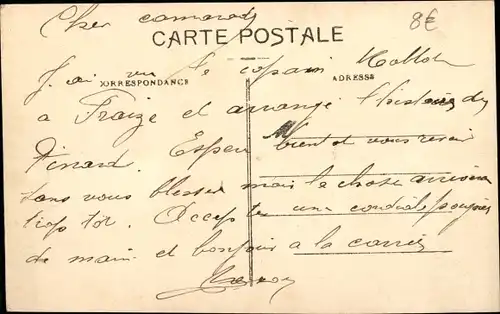 Cher camarade
8€
CARTE POSTALE
J'ai vu le copain Hollot
CORRESPONDANCE
ADRESSE
a Fraize et arrangé l'histoire du
Pinard. Espère bientot vous revoir
sans vous blesser mais la chose arrivera
trop tot. Accepte une cordiale poignée
de main et bonjour a la